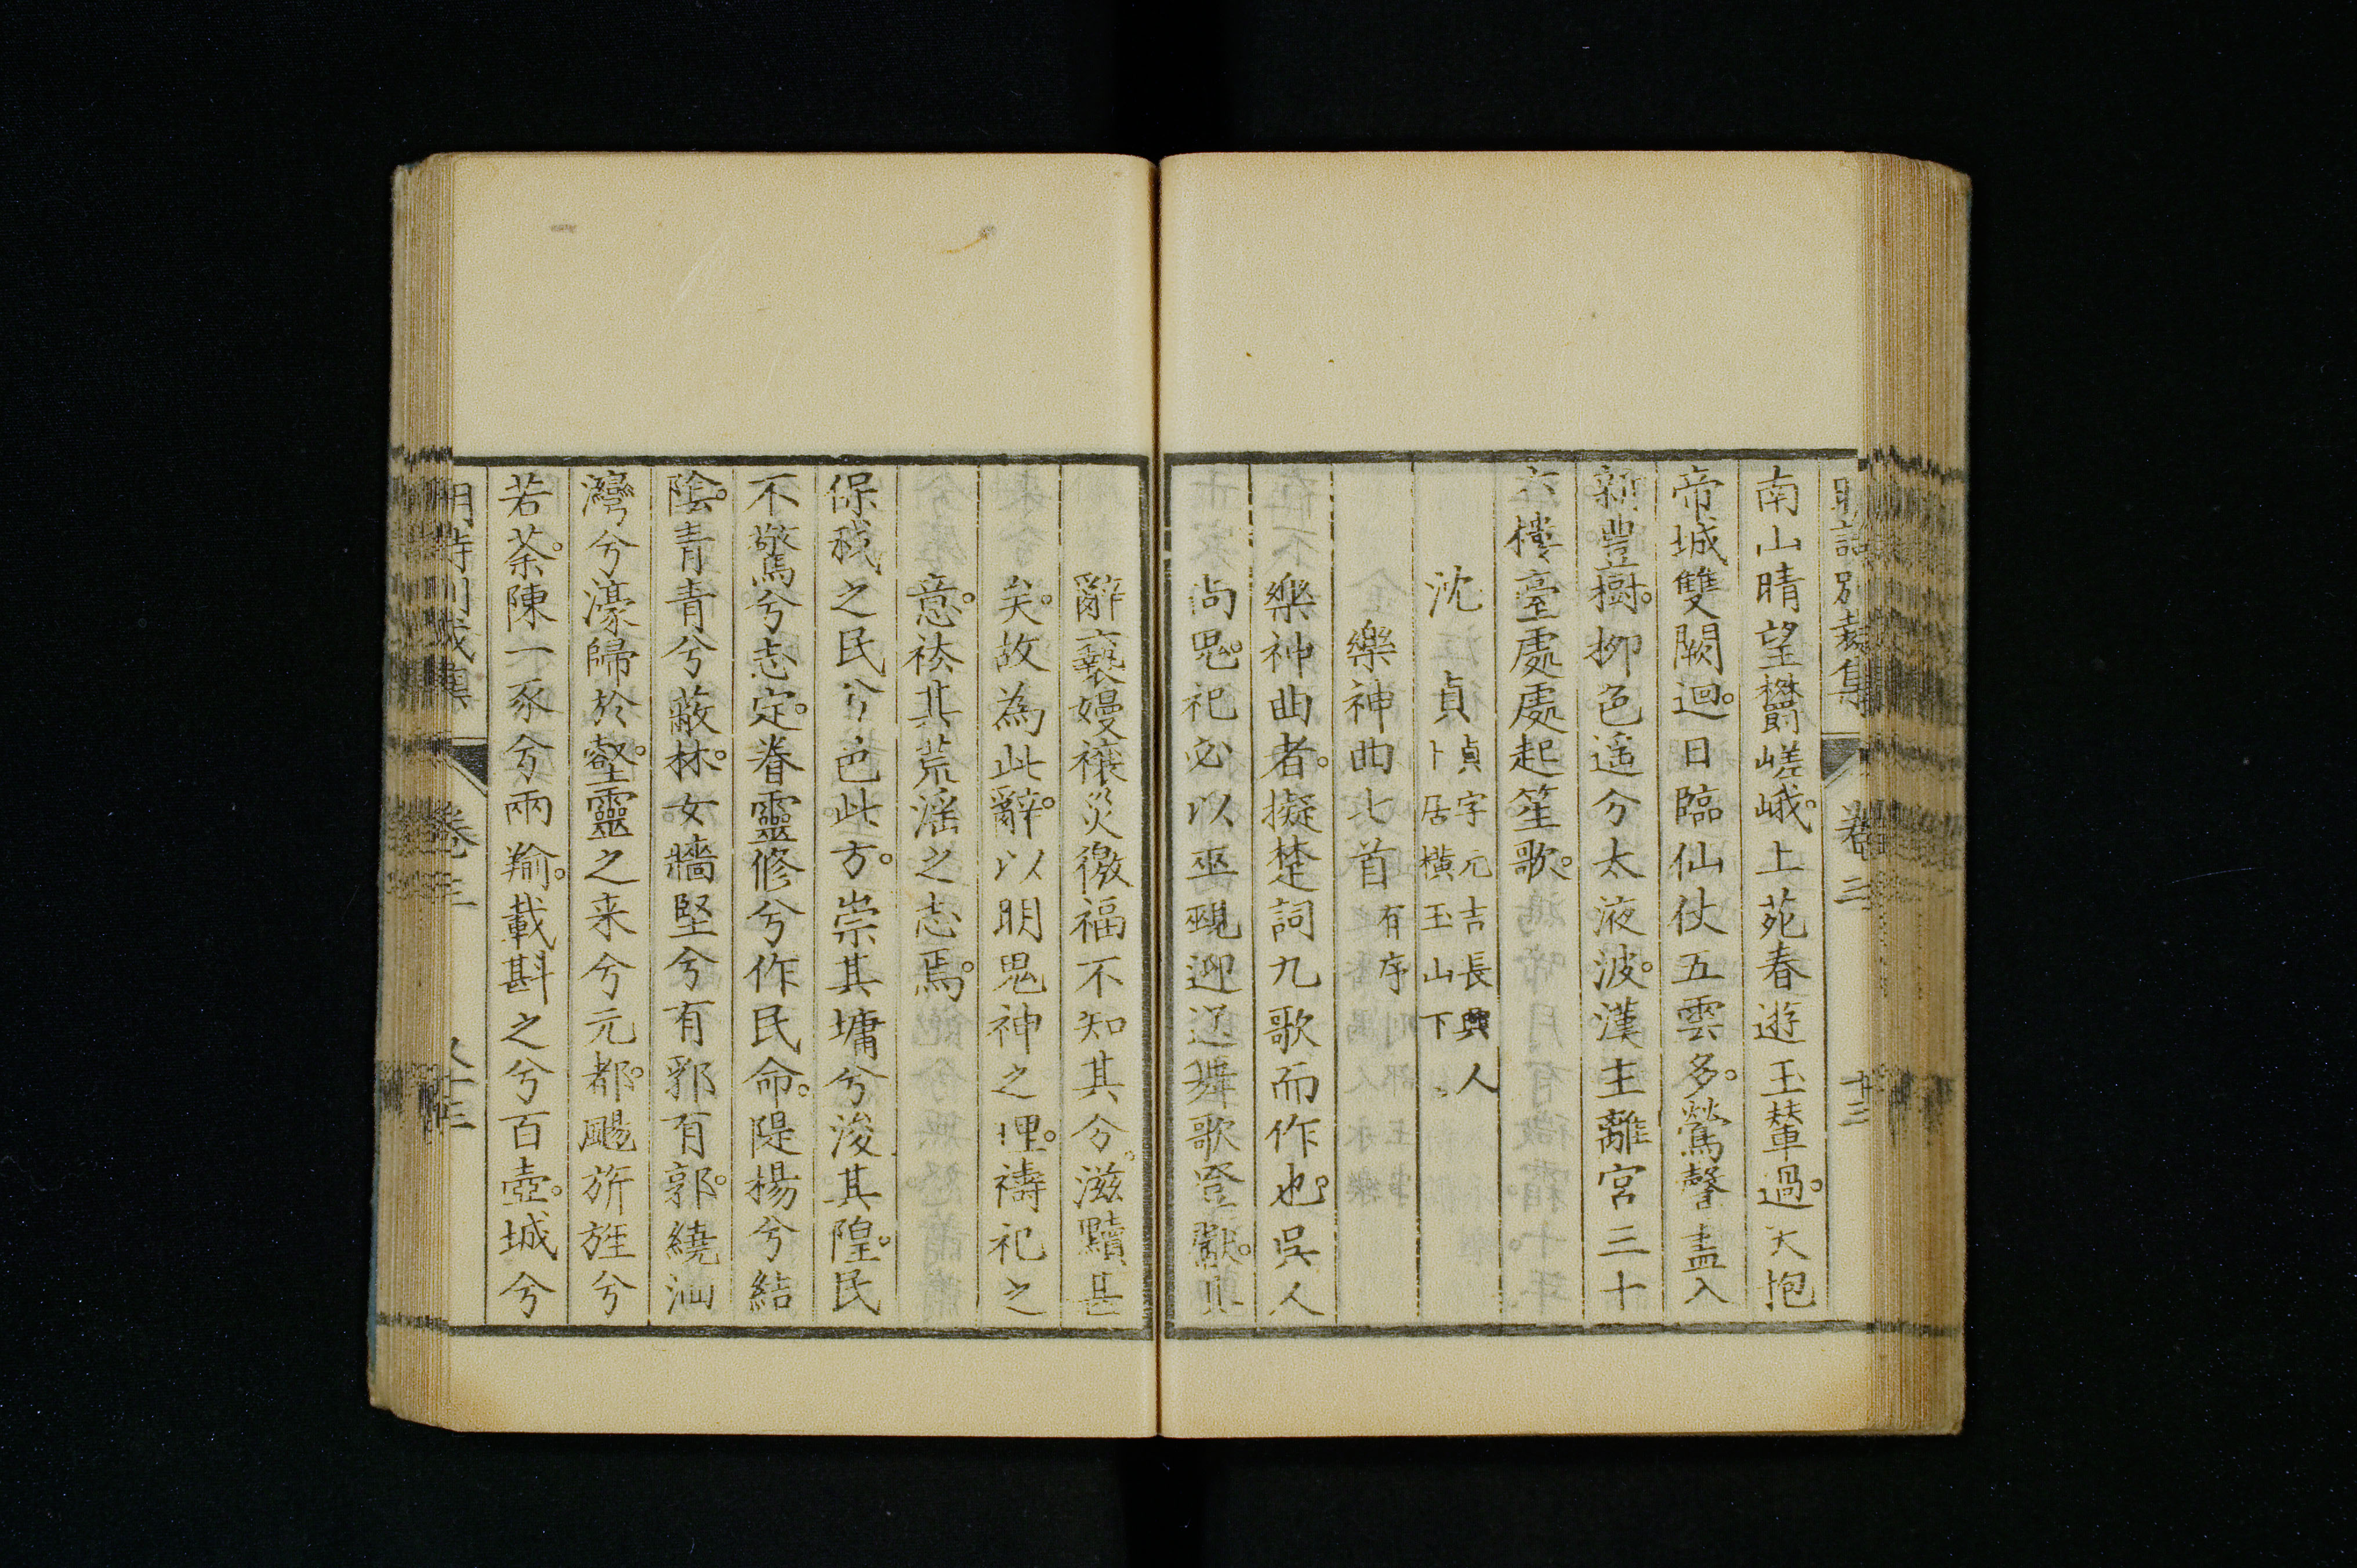 明詩別裁集 卷三 十三
南山晴望鬱嵯峨。上苑春遊玉輦過。天抱
帝城雙闕迴。日臨仙仗五雲多。鶯聲盡入
新豐樹。柳色遥分太液波。漢主離宮三十
六樓臺處處起笙歌。
沈貞
貞字元吉長興人
卜居横玉山下
樂神曲七首有序
樂神曲者。擬楚詞九歌而作也。吳人
尚鬼。祀必以巫覡迎送舞歌登獻。其
辭褻嫚禳災徼福不知其分。滋黷甚
矣。故為此辭。以明鬼神之理。禱祀之
意。祛其荒滛之志焉。
保我之民兮邑此方。崇其墉兮浚其隍。民
不驚兮志定。眷靈修兮作民命。隄楊兮結
陰。青青兮蔽林。女牆堅兮有郛有郭。繞汕
灣兮濠歸於壑。靈之来兮元都。颺旂旌兮
若荼。陳一豕兮兩羭。載斟之兮百壺。城兮
明詩別裁集 卷三 十三